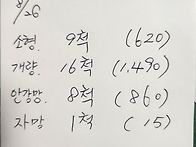 8/26
소형. 9척 (620)
개량. 16척 (1,490)
안강망. 8척 (860)
자망. 1척 (15)